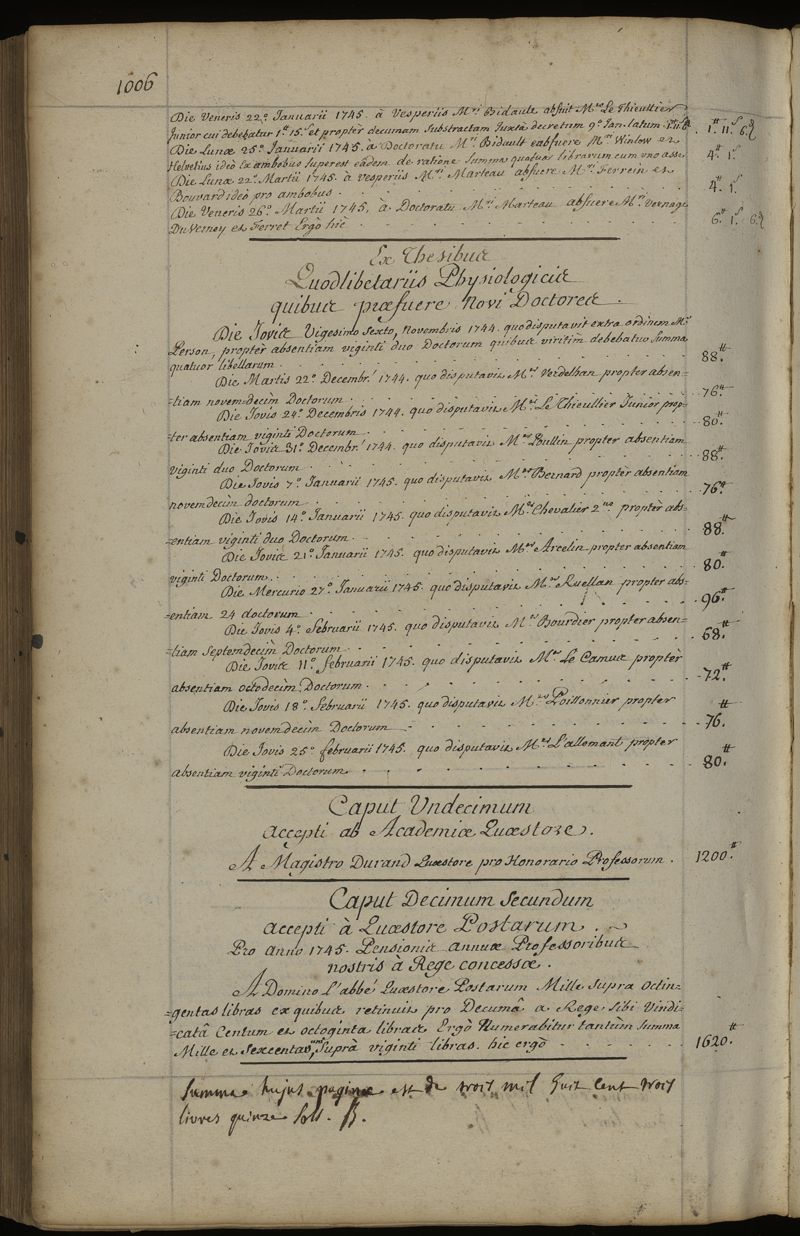 1006
Die Veneris 22.° Januarii 1745. à Vesperiis M.ri Bidault abfuit M.er Le Thieullier
Junior cui debebatur 1.# 15.s et propter decimam Substractam Juxta decretum 9.° Jan. latum 1.# 11.s 6.d
Die Lunæ 25.° Januarii 1745. à Doctoratu M.ri Bidault eabfuere M.ri Winlow et
Helvetius ideò Ex ambobus superest eâdem de ratione Summa quatuor librarum cum uno asse 4.# 1.s
Die Lunæ 22.° Martii 1745. à Vesperiis M.ri Marteau abfuere M.ri Ferrein et
Bouvard ideò pro ambobus 4.# 1.s
Die Veneris 26.° Martii 1745, à Doctoratu M.ri Marteau abfuere M.ri Vernage
Du Verney et Ferret Ergò hic 6.# 1.s 6.d
Ex Thesibus
Quodlibetariis Physiologicis
quibus præfuere Novi Doctores.
Die Jovis Vigesimo Sexto, Novembris 1744. quo disputavit extra ordinem M.er
Person, propter absentiam viginti duo Doctorum quibus viritim debebatur Summa
quatuor libellarum 88.#
Die Martis 22.° Decembr.' 1744. quo disputavit M.er Verdelhan propter absen=
=tiam novemdecim Doctorum 76.#
Die Jovis 24.° Decembris 1744. quo disputavit M.er Le Thieullier Junior prop=
=ter absentiam viginti Doctorum 80.#
Die Jovis 31.° Decembr.' 1744. quo disputavit M.er Poullin propter absentiam
viginti duo Doctorum 88.#
Die Jovis 7.° Januarii 1745. quo disputavit M.er Bernard propter absentiam
novemdecim doctorum 76.#
Die Jovis 14.° Januarii 1745. quo disputavit M.er Chevalier 2.us propter abs=
=entiam viginti duo Doctorum 88.#
Die Jovis 21.° Januarii 1745. quo disputavit M.er Arcelin propter absentiam
viginti Doctorum 80.#
Die Mercurio 27.° Januarii 1745. quo disputavit M.er Ruellan propter abs=
=entiam 24 doctorum 96.#
Die Jovis 4.° Februarii 1745. quo disputavit M.er Bourdier propter absen=
=tiam Septemdecim Doctorum 68.#
Die Jovis 11.° februarii 1745. quo disputavit M.er Le Camus propter
absentiam octodecim Doctorum 72.#
Die Jovis 18.° Februarii 1745. quo disputavit M.er Poissonnier propter
absentiam novemdecim Doctorum 76.#
Die Jovis 25.° februarii 1745. quo disputavit M.er L'allemant propter
absentiam viginti Doctorum 80.#
Caput Undecimum
accepti ab Academiæ Quæstore.
A Magistro Durand Quæstore pro Honorario Professorum. 1200.#
Caput Decimum Secundum
accepti à Quæstore Postarum.
Pro Anno 1745. Pensionis annuæ Professoribus
nostris à Rege concessæ.
A Domino L'abbé Quæstore Postarum Mille Supra octin=
=gentas libras ex quibus retinuit pro Decumâ a Rege Sibi Vindi=
=catâ Centum et octoginta libras Ergò Numerabitur tantùm Summa
Mille et Sexcentarum Suprà viginti libras. hic ergò 1620.#
Summa hujus paginæ est de trois mil huit cent trois
livres quinze sols.